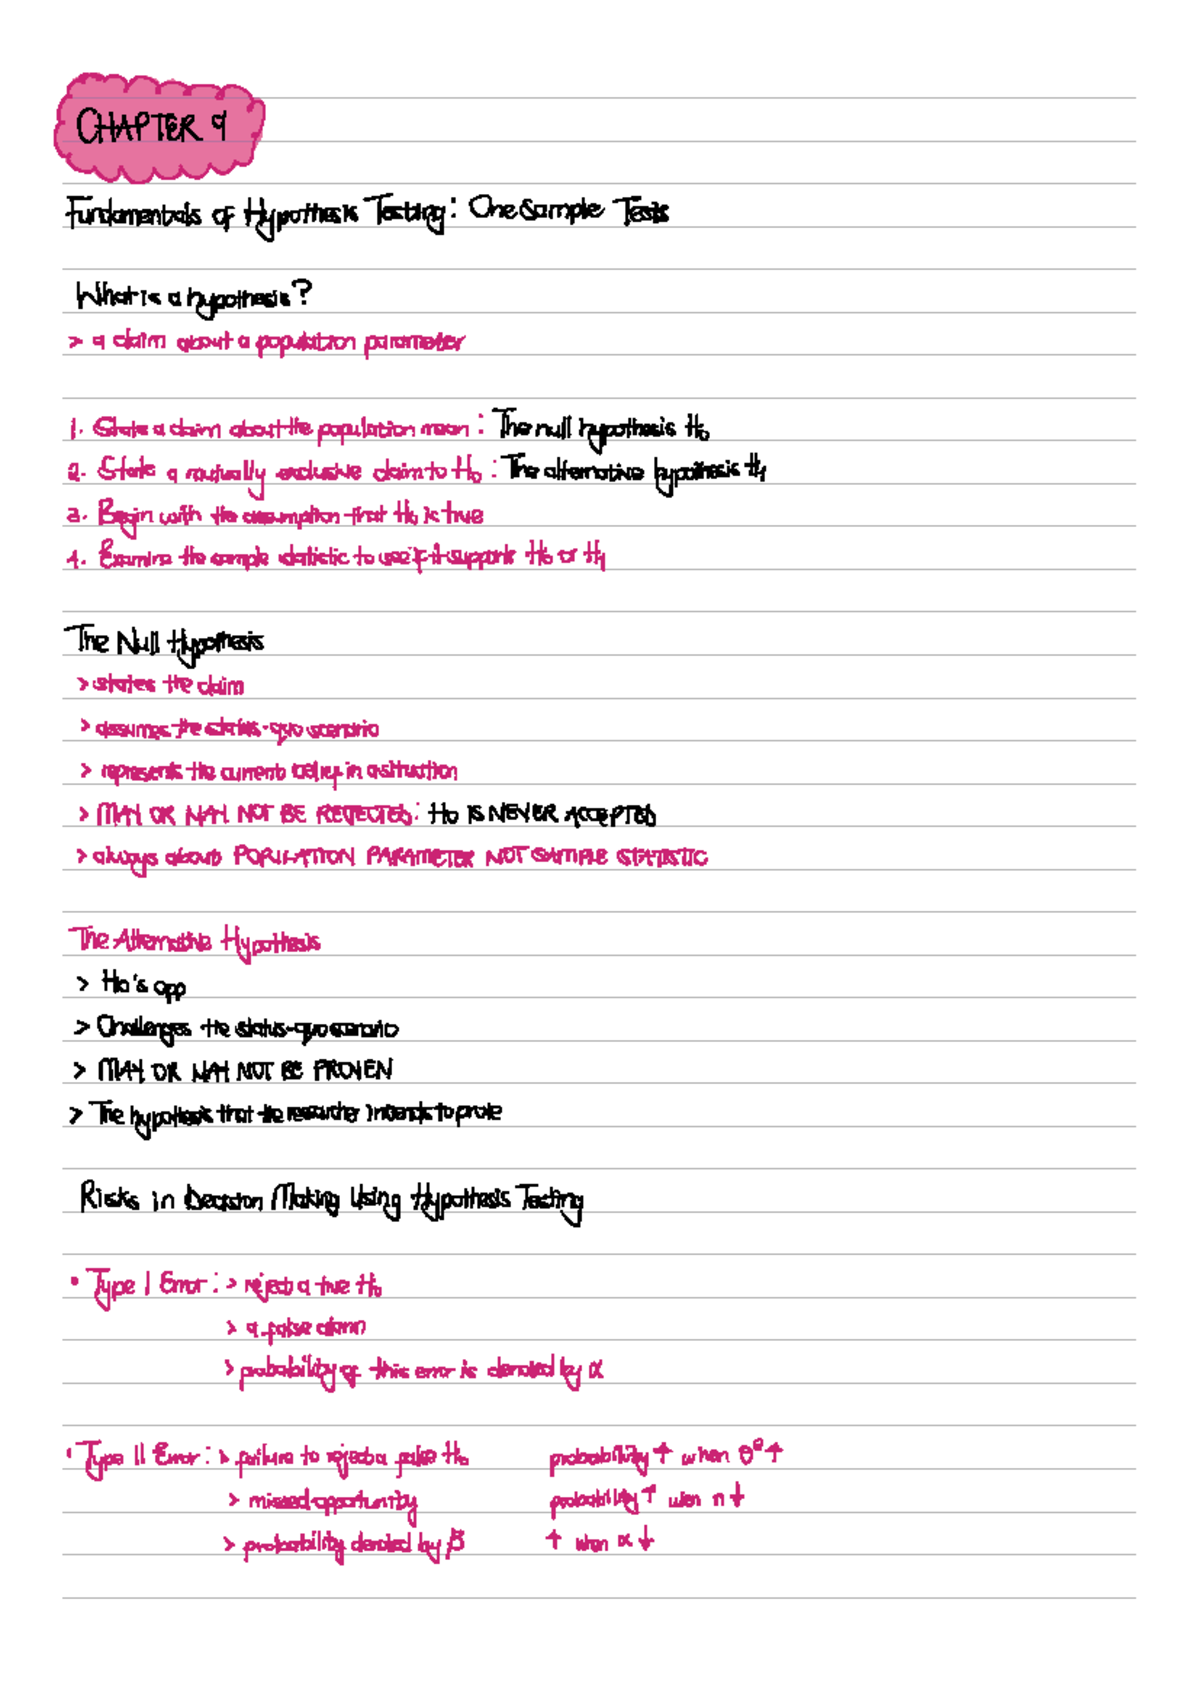 CHAPTER 9
Fundamentals of Hypothesis Testing: One Sample Tests
What is a hypothesis?
> a claim about a population parameter
1. State a claim about the population mean : The null hypothesis H₀
2. State a mutually exclusive claim to H₀ : The alternative hypothesis H₁
3. Begin with the assumption that H₀ is true
4. Examine the sample statistic to see if it supports H₀ or H₁
The Null Hypothesis
> states the claim
> assumes the status-quo scenario
> represents the current belief in a situation
> MAY OR MAY NOT BE REJECTED: H₀ IS NEVER ACCEPTED
> always about POPULATION PARAMETER NOT SAMPLE STATISTIC
The Alternative Hypothesis
> H₀'s opp
> Challenges the status-quo scenario
> MAY OR MAY NOT BE PROVEN
> The hypothesis that the researcher intends to prove
Risks in Decision Making Using Hypothesis Testing
• Type I Error : > reject a true H₀
> a false alarm
> probability of this error is denoted by α
• Type II Error : > failure to reject a false H₀ probability ↑ when ↑
> missed opportunity probability ↑ when n ↓
> probability denoted by β ↑ when α ↓